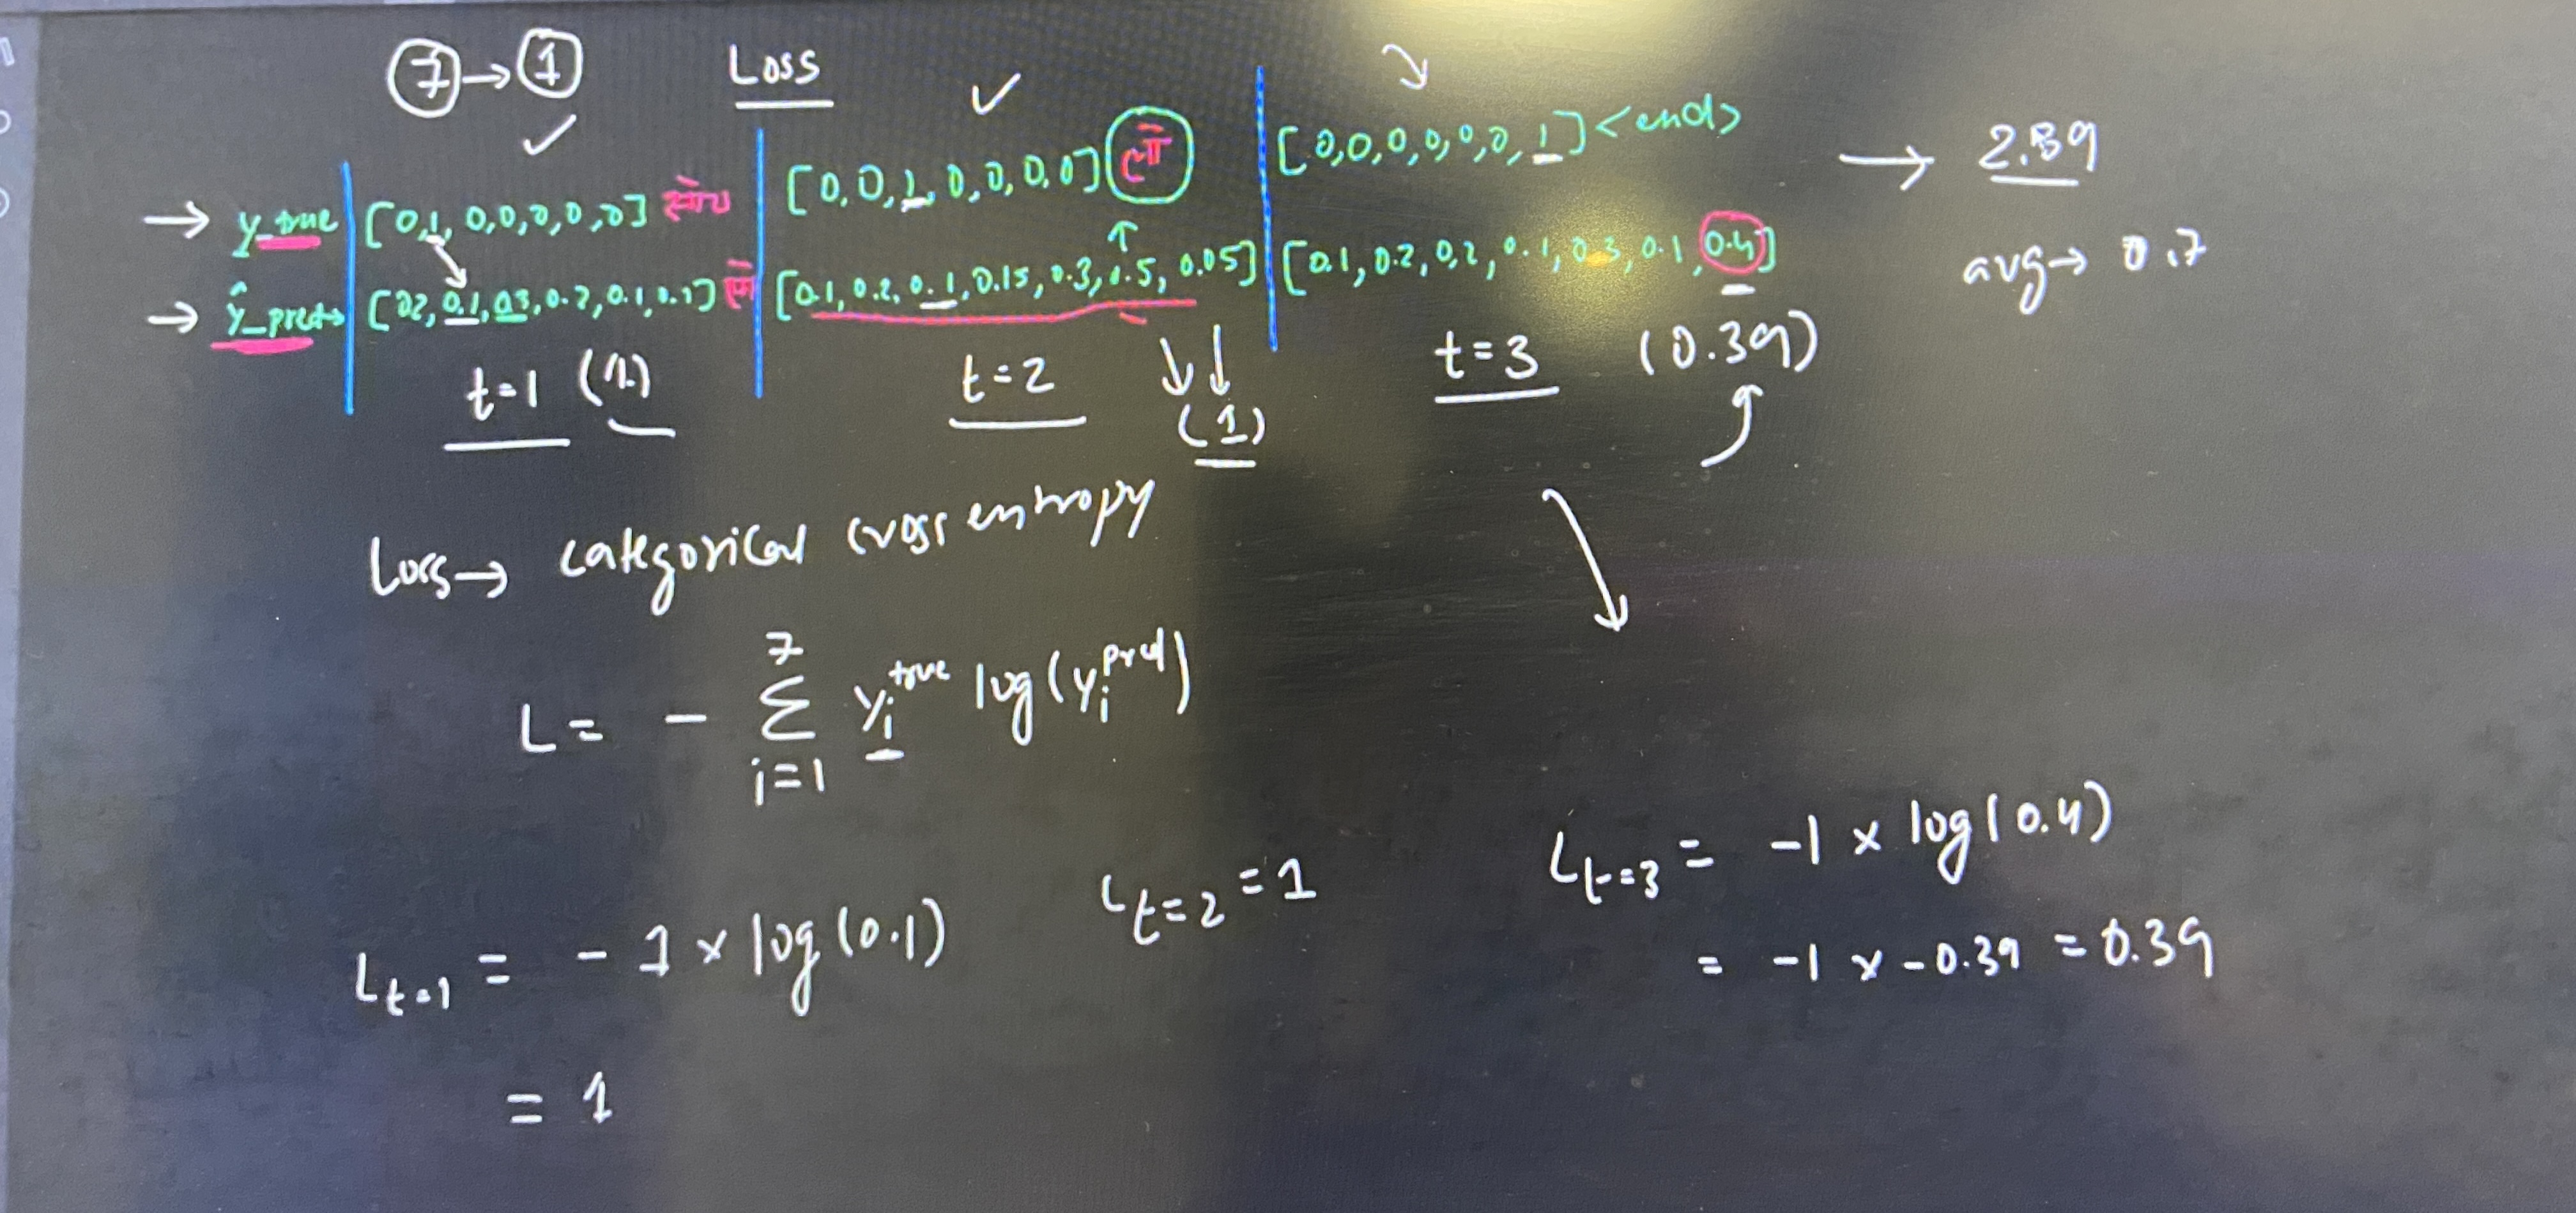 7 → 1 Loss
y_true [0,1,0,0,0,0,0] सोच [0,0,1,0,0,0,0] लो [0,0,0,0,0,0,1] <end> → 2.39
ŷ_pred → [0.2,0.1,0.3,0.2,0.1,0.1] लो [0.1,0.2,0.1,0.15,0.3,1.5,0.05] [0.1,0.2,0.2,0.1,0.3,0.1,0.4] avg → 0.7
t=1 (1) t=2 (1) t=3 (0.39)
Loss → categorical cross entropy
L = - 7 Σ i=1 yᵢ^true log(yᵢ^pred)
L t=1 = - 1 × log(0.1) L t=2 = 1 L t=3 = -1 × log(0.4)
= -1 × -0.39 = 0.39
= 1